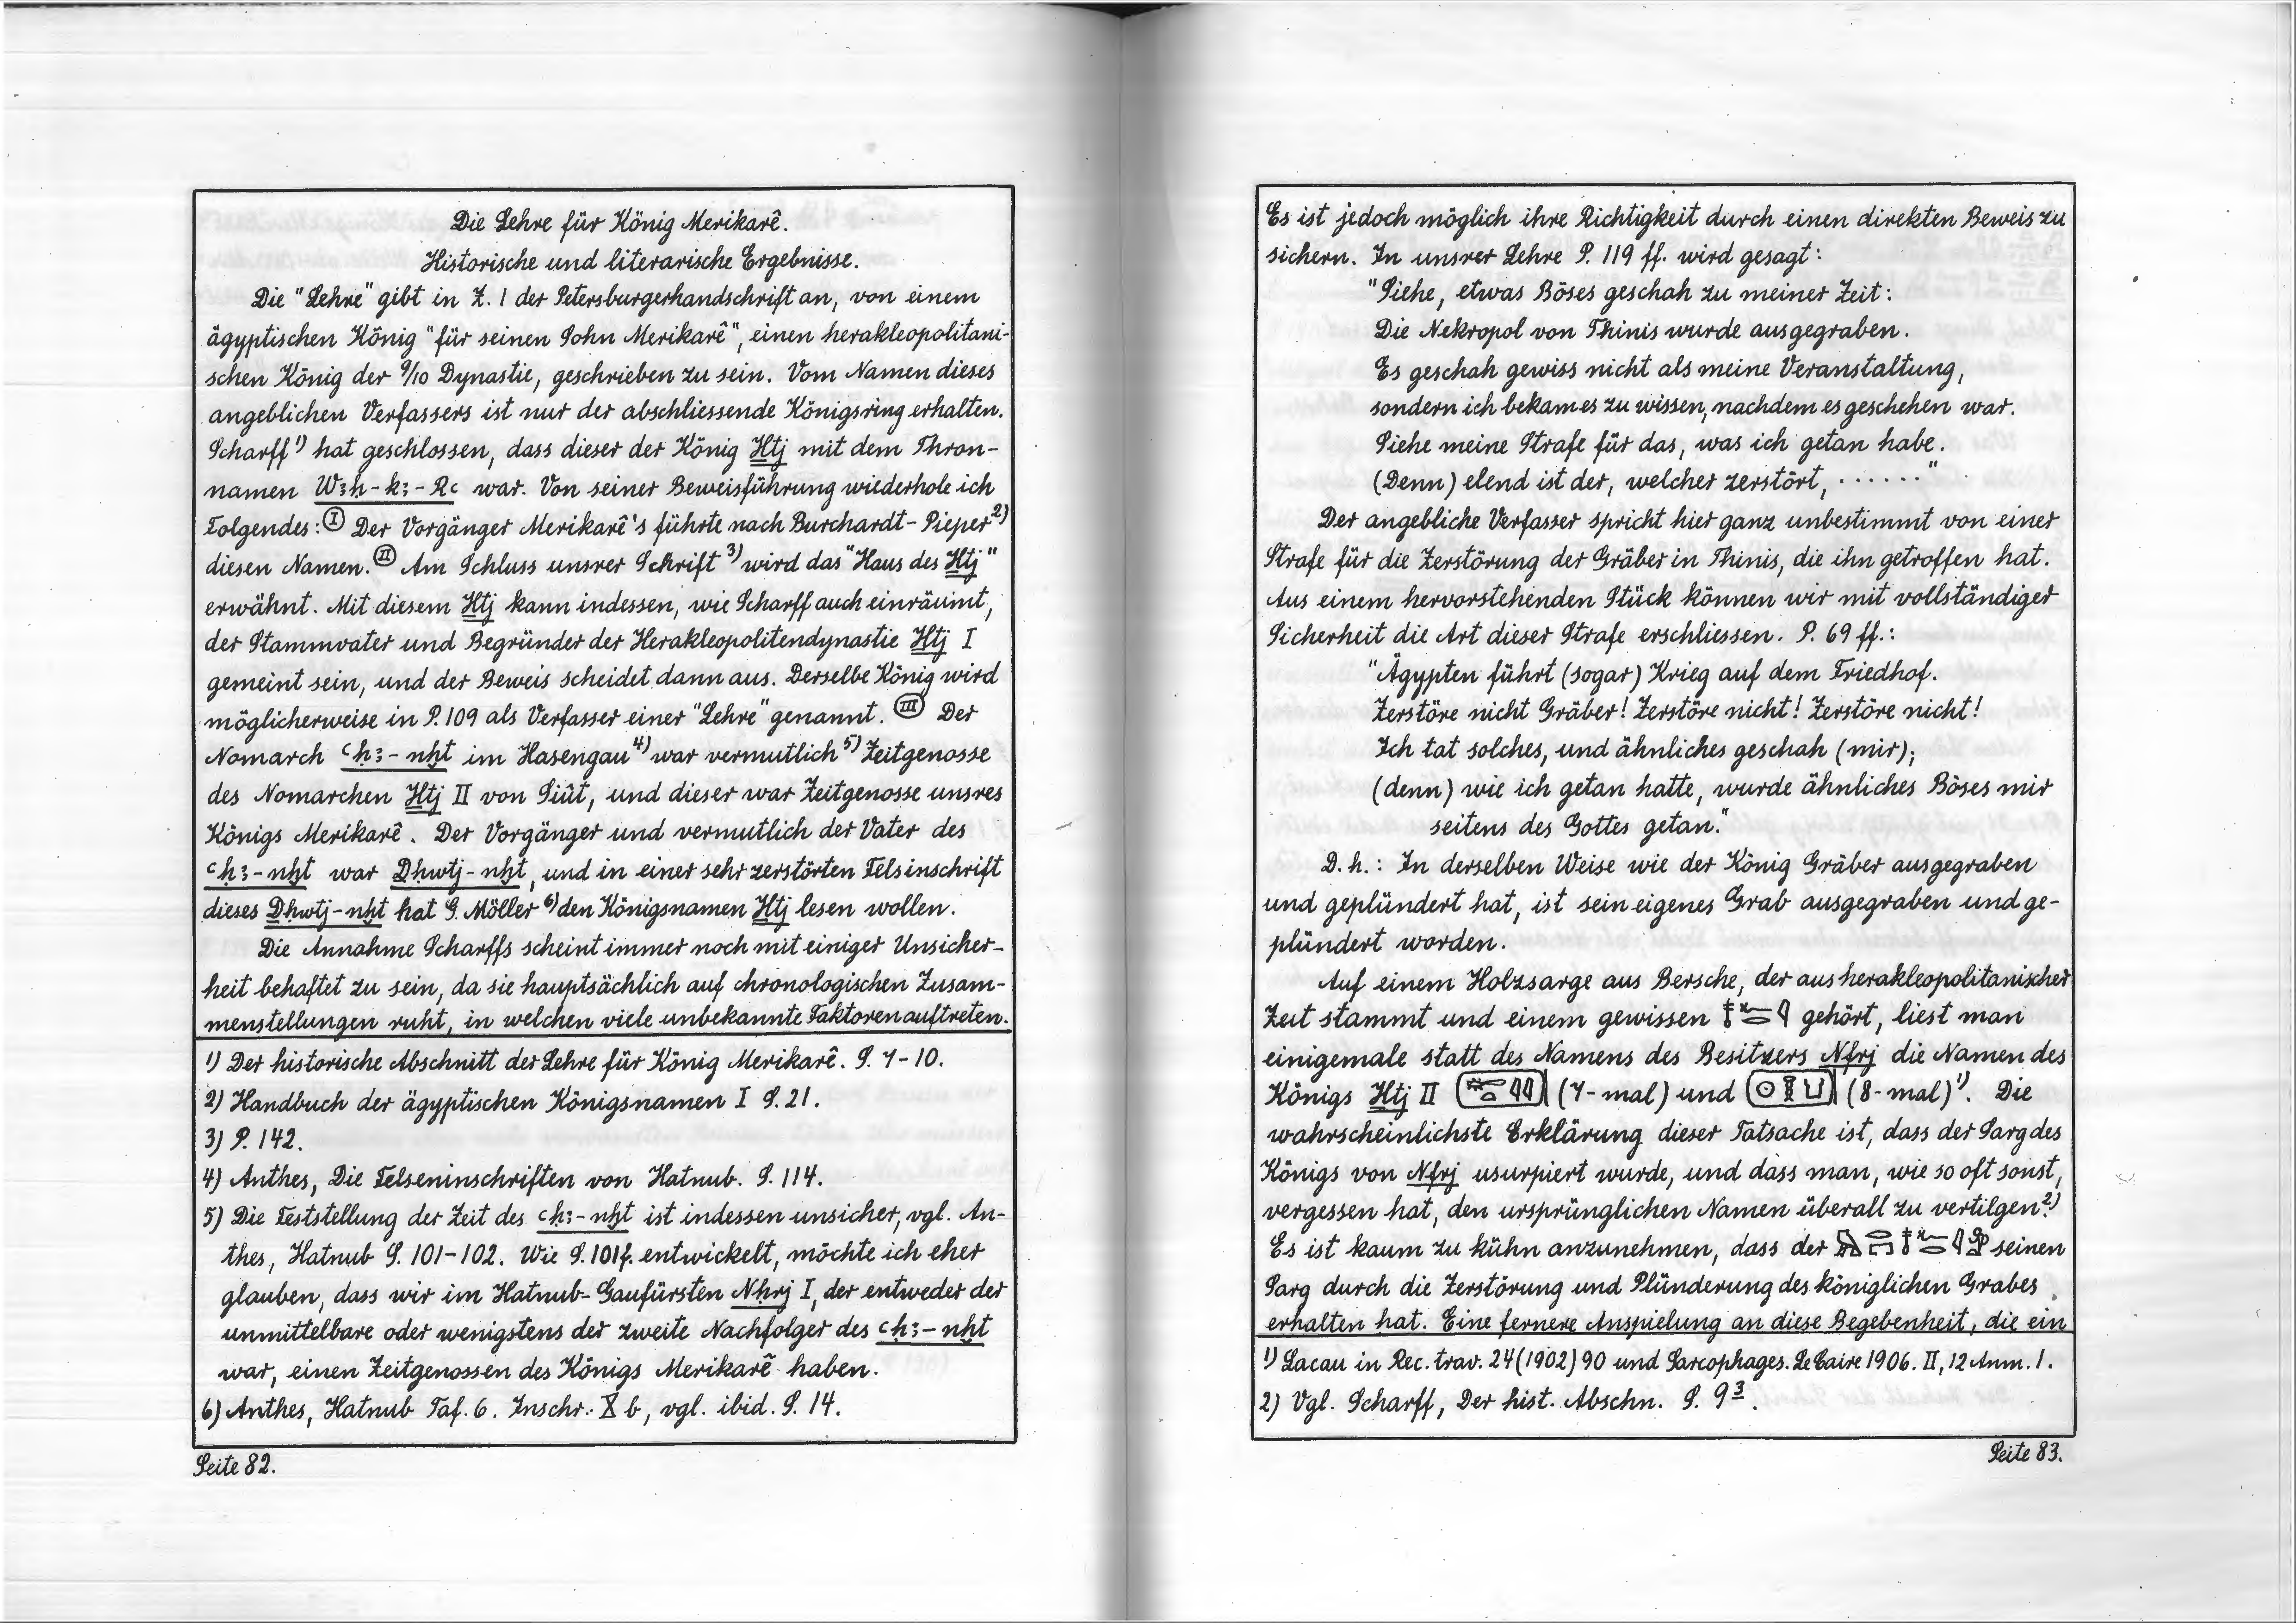 Die Lehre für König Merikarê.
Historische und literarische Ergebnisse.
Die "Lehre" gibt in Z. 1 der Petersburgerhandschrift an, von einem
ägyptischen König "für seinen Sohn Merikarê", einen herakleopolitani-
schen König der 9/10 Dynastie, geschrieben zu sein. Vom Namen dieses
angeblichen Verfassers ist nur der abschliessende Königsring erhalten.
Scharff 1) hat geschlossen, dass dieser der König Ḫtj mit dem Thron-
namen Wꜣḥ-kꜣ-Rꜥ war. Von seiner Beweisführung wiederhole ich
Folgendes: Ⓘ Der Vorgänger Merikarê's führte nach Burchardt-Pieper 2)
diesen Namen. (II) Am Schluss unsrer Schrift 3) wird das "Haus des Ḫtj"
erwähnt. Mit diesem Ḫtj kann indessen, wie Scharff auch einräumt,
der Stammvater und Begründer der Herakleopolitendynastie Ḫtj I
gemeint sein, und der Beweis scheidet dann aus. Derselbe König wird
möglicherweise in P. 109 als Verfasser einer "Lehre" genannt. (III) Der
Nomarch ꜥḥꜣ-nḫt im Hasengau 4) war vermutlich 5) Zeitgenosse
des Nomarchen Ḫtj II von Siût, und dieser war Zeitgenosse unsres
Königs Merikarê. Der Vorgänger und vermutlich der Vater des
ꜥḥꜣ-nḫt war Ḏḥwtj-nḫt, und in einer sehr zerstörten Felsinschrift
dieses Ḏḥwtj-nḫt hat G. Möller 6) den Königsnamen Ḫtj lesen wollen.
Die Annahme Scharffs scheint immer noch mit einiger Unsicher-
heit behaftet zu sein, da sie hauptsächlich auf chronologischen Zusam-
menstellungen ruht, in welchen viele unbekannte Faktoren auftreten.
1) Der historische Abschnitt der Lehre für König Merikarê. S. 7-10.
2) Handbuch der ägyptischen Königsnamen I S. 21.
3) P. 142.
4) Anthes, Die Felseninschriften von Hatnub. S. 114.
5) Die Feststellung der Zeit des ꜥḥꜣ-nḫt ist indessen unsicher, vgl. An-
thes, Hatnub S. 101-102. Wie S. 101f. entwickelt, möchte ich eher
glauben, dass wir im Hatnub-Gaufürsten Nḥrj I, der entweder der
unmittelbare oder wenigstens der zweite Nachfolger des ꜥḥꜣ-nḫt
war, einen Zeitgenossen des Königs Merikarê haben.
6) Anthes, Hatnub Taf. 6. Inschr. X b, vgl. ibid. S. 14.
Seite 82.
Es ist jedoch möglich ihre Richtigkeit durch einen direkten Beweis zu
sichern. In unsrer Lehre P. 119 ff. wird gesagt:
"Siehe, etwas Böses geschah zu meiner Zeit:
Die Nekropol von Thinis wurde ausgegraben.
Es geschah gewiss nicht als meine Veranstaltung,
sondern ich bekam es zu wissen, nachdem es geschehen war.
Siehe meine Strafe für das, was ich getan habe.
(Denn) elend ist der, welcher zerstört, ......"
Der angebliche Verfasser spricht hier ganz unbestimmt von einer
Strafe für die Zerstörung der Gräber in Thinis, die ihn getroffen hat.
Aus einem hervorstehenden Stück können wir mit vollständiger
Sicherheit die Art dieser Strafe erschliessen. P. 69 ff.:
"Ägypten führt (sogar) Krieg auf dem Friedhof.
Zerstöre nicht Gräber! Zerstöre nicht! Zerstöre nicht!
Ich tat solches, und ähnliches geschah (mir);
(denn) wie ich getan hatte, wurde ähnliches Böses mir
seitens des Gottes getan."
D. h.: In derselben Weise wie der König Gräber ausgegraben
und geplündert hat, ist sein eigenes Grab ausgegraben und ge-
plündert worden.
Auf einem Holzsarge aus Bersche, der aus herakleopolitanischer
Zeit stammt und einem gewissen gehört, liest man
einigemale statt des Namens des Besitzers Nfrj die Namen des
Königs Ḫtj II (7-mal) und (8-mal) 1). Die
wahrscheinlichste Erklärung dieser Tatsache ist, dass der Sarg des
Königs von Nfrj usurpiert wurde, und dass man, wie so oft sonst,
vergessen hat, den ursprünglichen Namen überall zu vertilgen. 2)
Es ist kaum zu kühn anzunehmen, dass der seinen
Sarg durch die Zerstörung und Plünderung des königlichen Grabes
erhalten hat. Eine fernere Anspielung an diese Begebenheit, die ein
1) Lacau in Rec. trav. 24 (1902) 90 und Sarcophages. Le Caire 1906. II, 12 Anm. 1.
2) Vgl. Scharff, Der hist. Abschn. S. 9 3.
Seite 83.